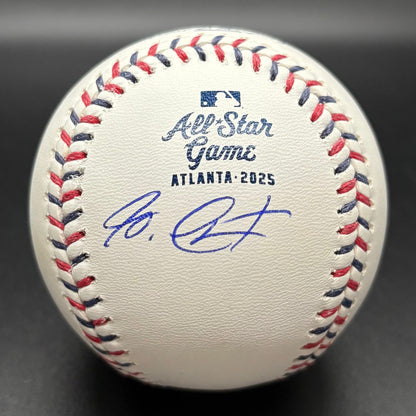 All-Star
Game
ATLANTA · 2025